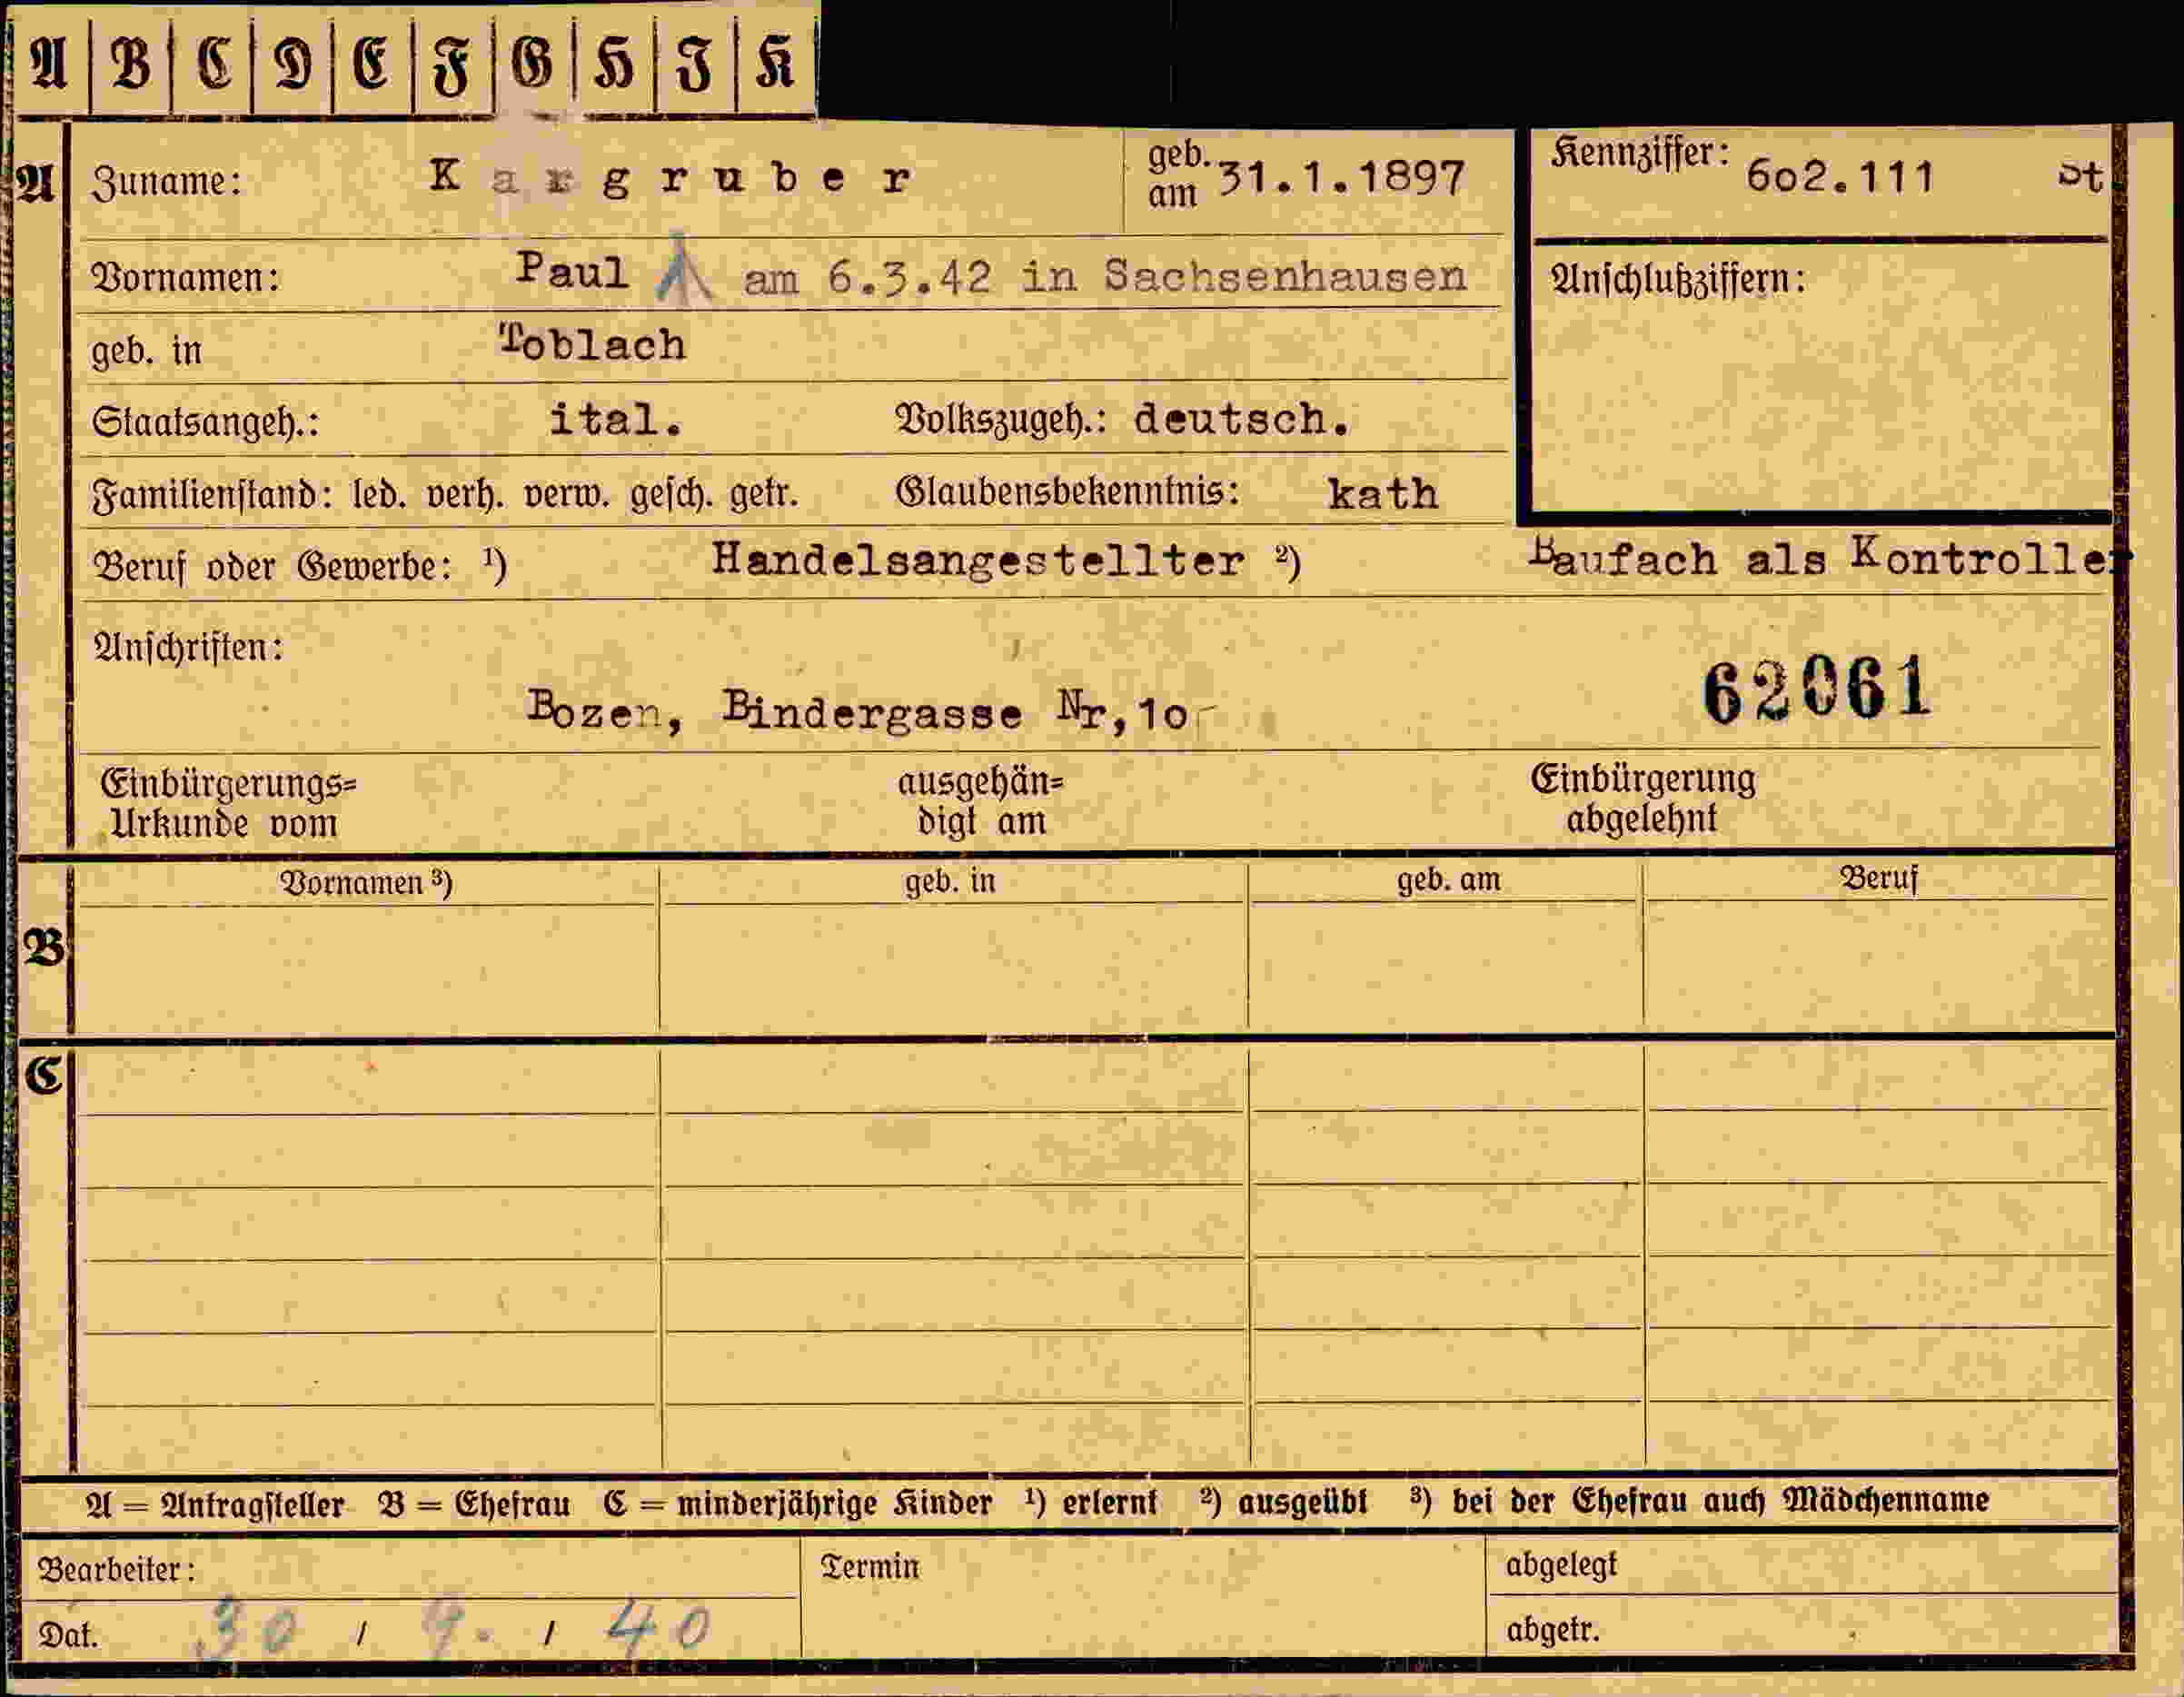 A B C D E F G H I K
A Zuname: Kargruber geb. am 31.1.1897 Kennziffer: 602.111 St
Vornamen: Paul am 6.3.42 in Sachsenhausen Anschlußziffern:
geb. in Toblach
Staatsangeh.: ital. Volkszugeh.: deutsch.
Familienstand: led. verh. verw. gesch. getr. Glaubensbekenntnis: kath
Beruf oder Gewerbe: ¹) Handelsangestellter ²) Baufach als Kontroller
Anschriften:
Bozen, Bindergasse Nr,10 62061
Einbürgerungs= ausgehän= Einbürgerung
Urkunde vom digt am abgelehnt
Vornamen ³) geb. in geb. am Beruf
B
C
A = Antragsteller B = Ehefrau C = minderjährige Kinder ¹) erlernt ²) ausgeübt ³) bei der Ehefrau auch Mädchenname
Bearbeiter: Termin abgelegt
Dat. 30 / 9. / 40 abgetr.